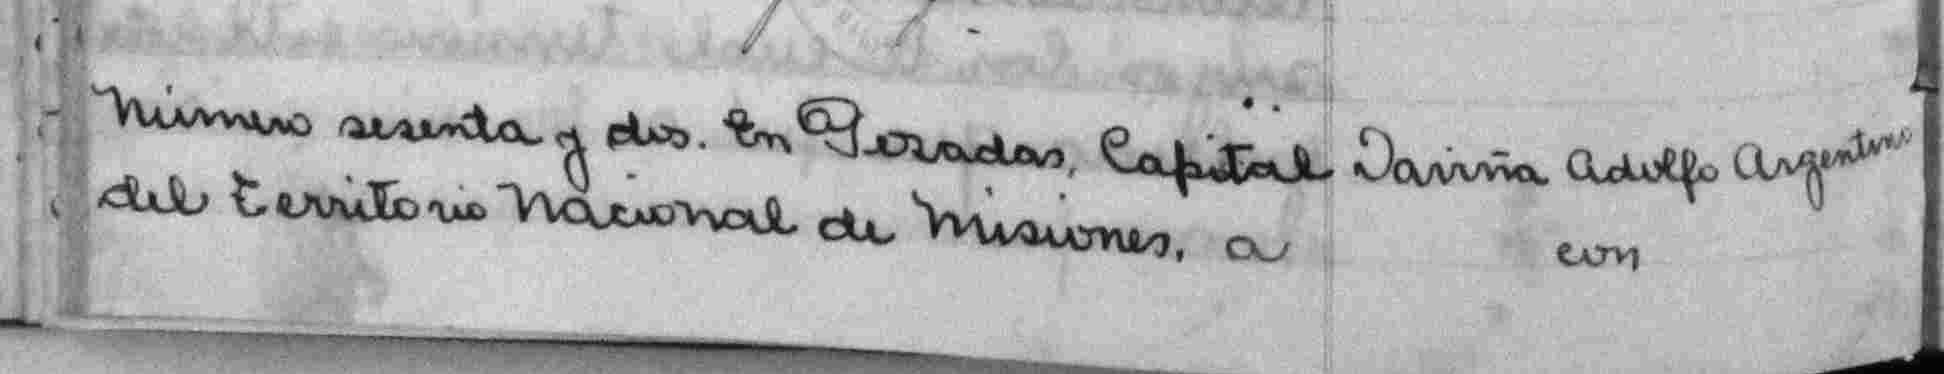 Número sesenta y dos. En Posadas, Capital
del Territorio Nacional de Misiones, a
Dariña Adolfo Argentino
con